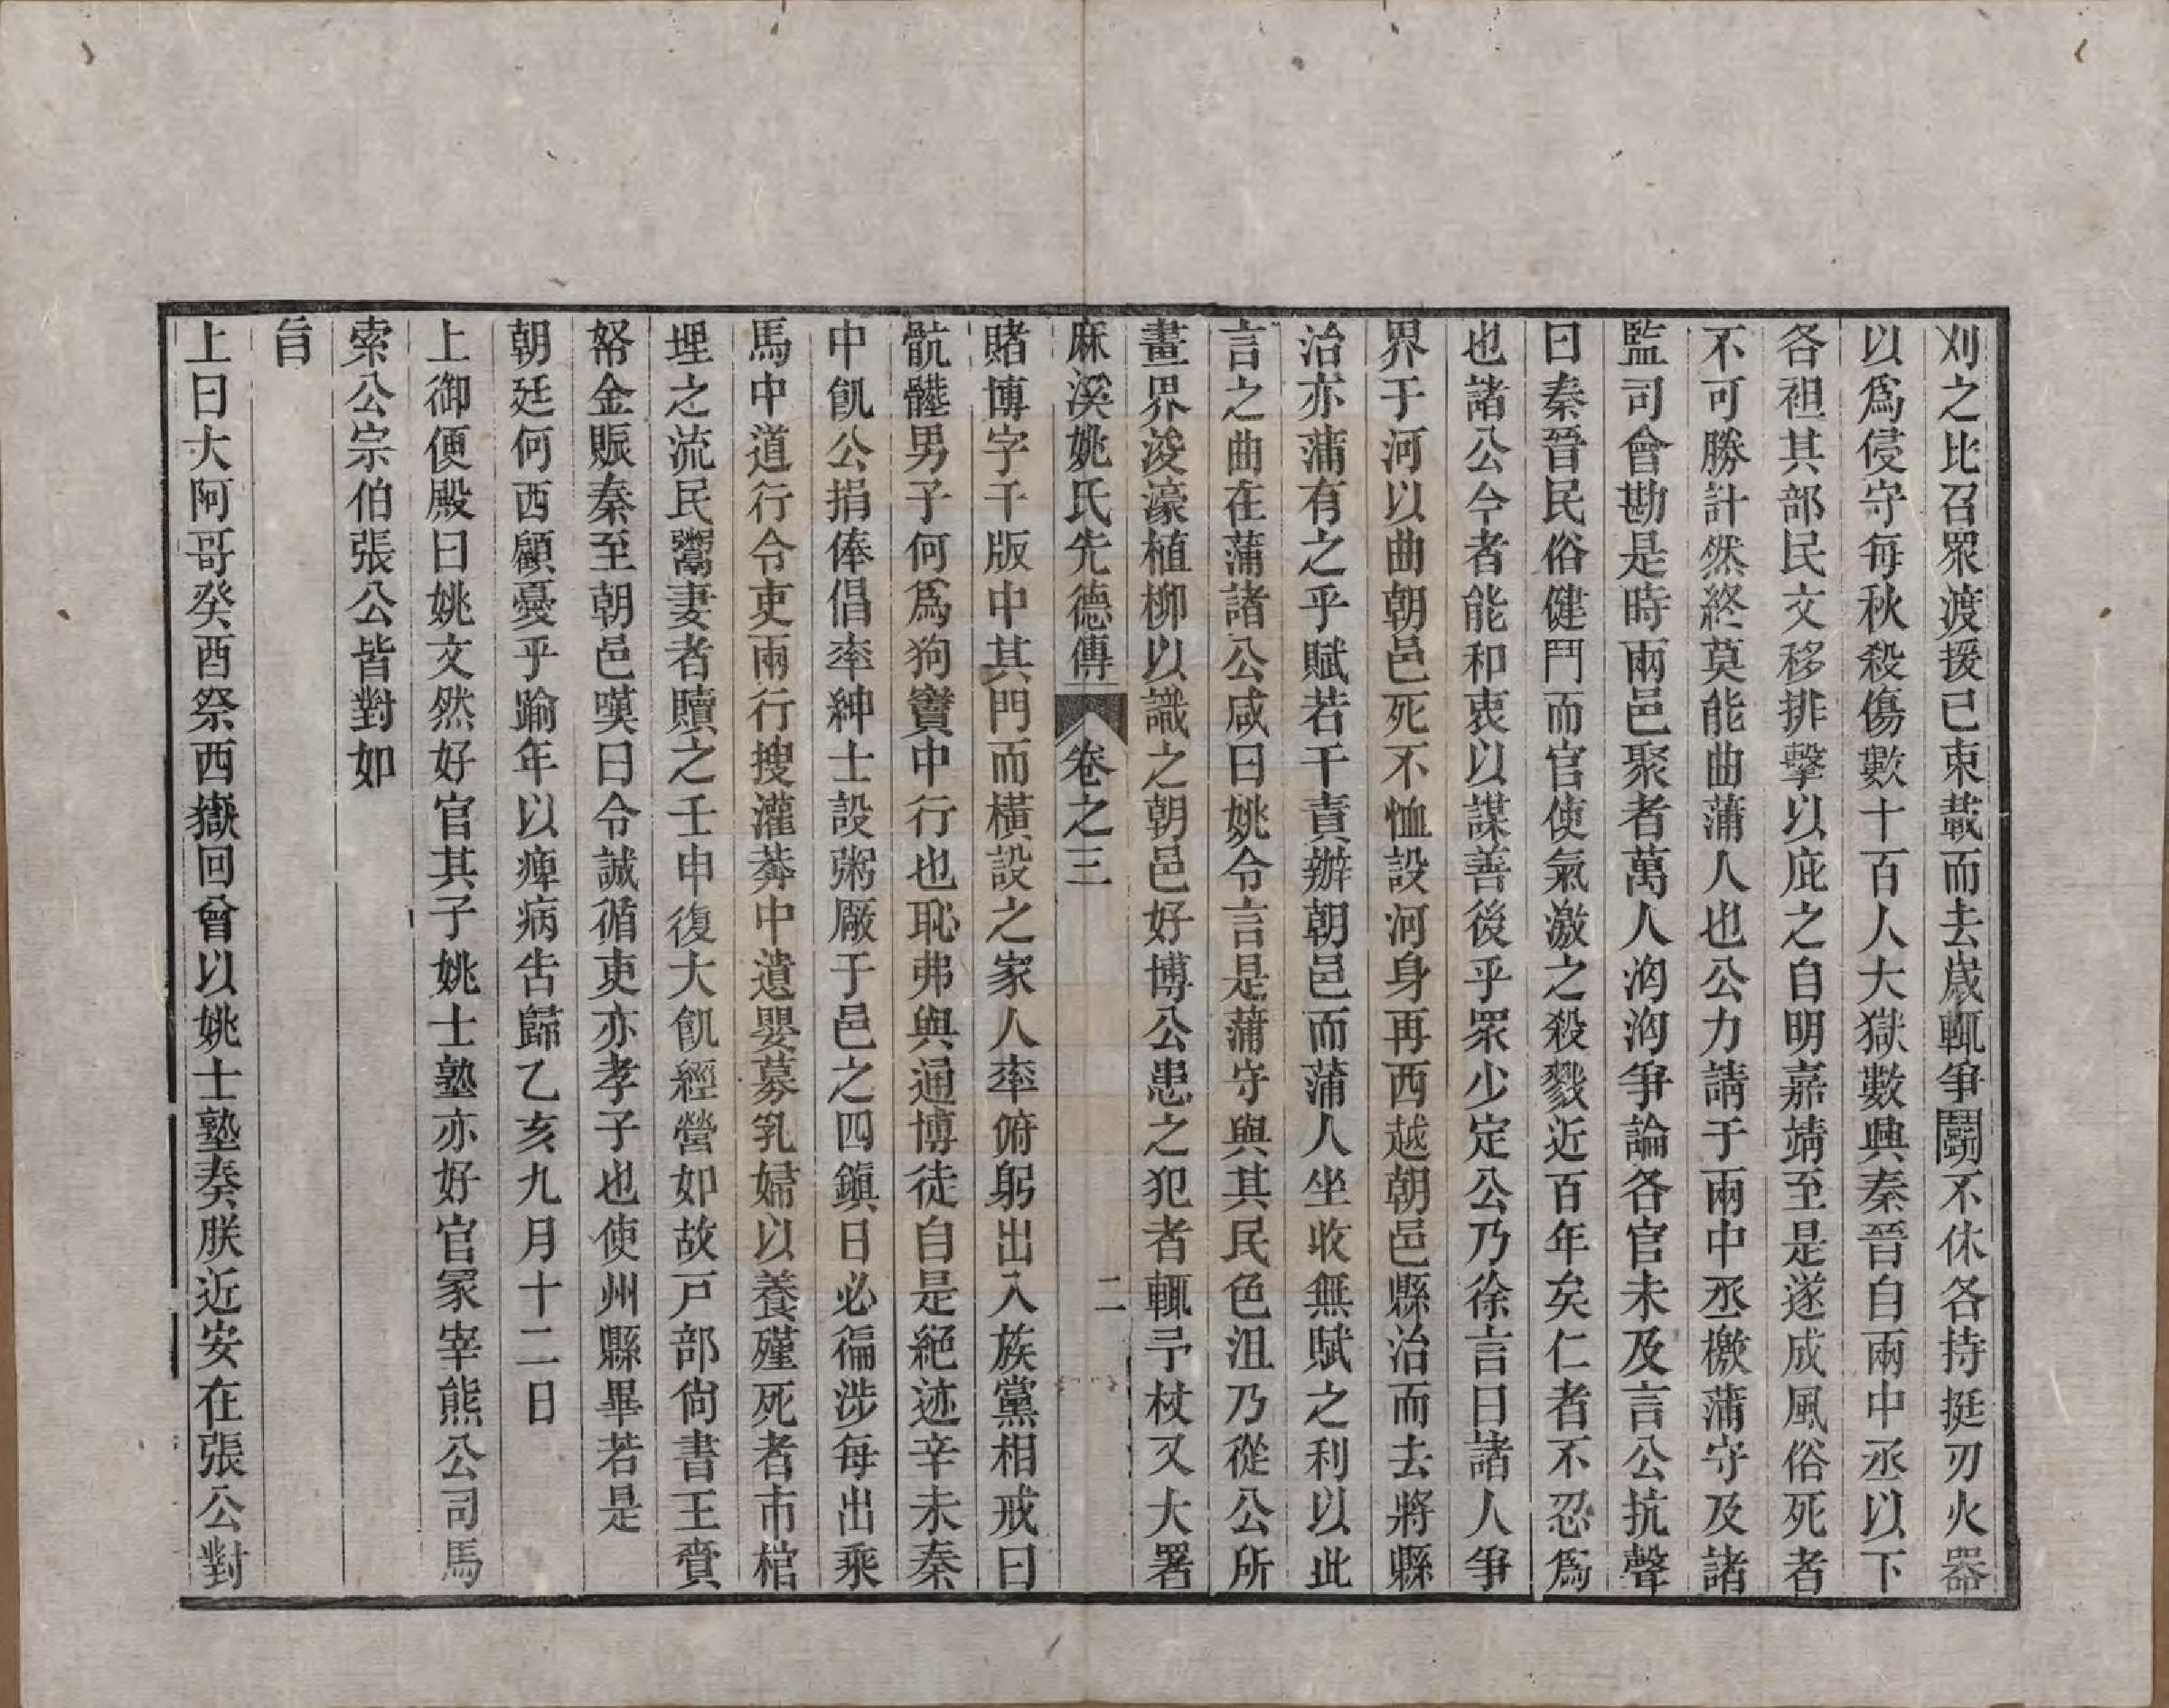 刈之比召眾渡援已束載而去歲輒爭鬭不休各持挺刃火器
以爲侵守每秋殺傷數十百人大獄數興秦晉自兩中丞以下
各袒其部民文移排擊以庇之自明嘉靖至是遂成風俗死者
不可勝計然終莫能曲蒲人也公力請于兩中丞檄蒲守及諸
監司會勘是時兩邑聚者萬人洶洶爭論各官未及言公抗聲
曰秦晉民俗健鬥而官使氣激之殺戮近百年矣仁者不忍爲
也諸公今者能和衷以謀善後乎眾少定公乃徐言曰諸人爭
界于河以曲朝邑死不恤設河身再西越朝邑縣治而去將縣
治亦蒲有之乎賦若干責辦朝邑而蒲人坐收無賦之利以此
言之曲在蒲諸公咸曰姚令言是蒲守與其民色沮乃從公所
畫界浚濠植柳以識之朝邑好博公患之犯者輒予杖又大署
麻溪姚氏先德傳 卷之三 二
賭博字千版中其門而橫設之家人率俯躬出入族黨相戒曰
骯髒男子何爲狗竇中行也恥弗與通博徒自是絕迹辛未秦
中飢公捐俸倡率紳士設粥厰于邑之四鎭日必徧涉每出乘
馬中道行令吏兩行搜灌莽中遺嬰募乳婦以養殣死者市棺
埋之流民鬻妻者贖之壬申復大飢經營如故戸部尙書王賫
帑金賑秦至朝邑嘆曰令誠循吏亦孝子也使州縣畢若是
朝廷何西顧憂乎踰年以痺病告歸乙亥九月十二日
上御便殿曰姚文然好官其子姚士塾亦好官冢宰熊公司馬
索公宗伯張公皆對如
旨
上曰大阿哥癸酉祭西嶽回曾以姚士塾奏朕近安在張公對